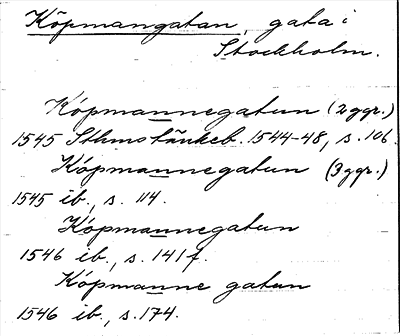 Köpmangatan, gata i
Stockholm.
Köpmannegatun (2 ggr.)
1545 Sthms tänkeb. 1544-48, s. 106.
Köpmannegatun (3 ggr.)
1545 ib., s. 114.
Köpmannegatun
1546 ib., s. 141 f.
Köpmanne gatun
1546 ib., s. 174.